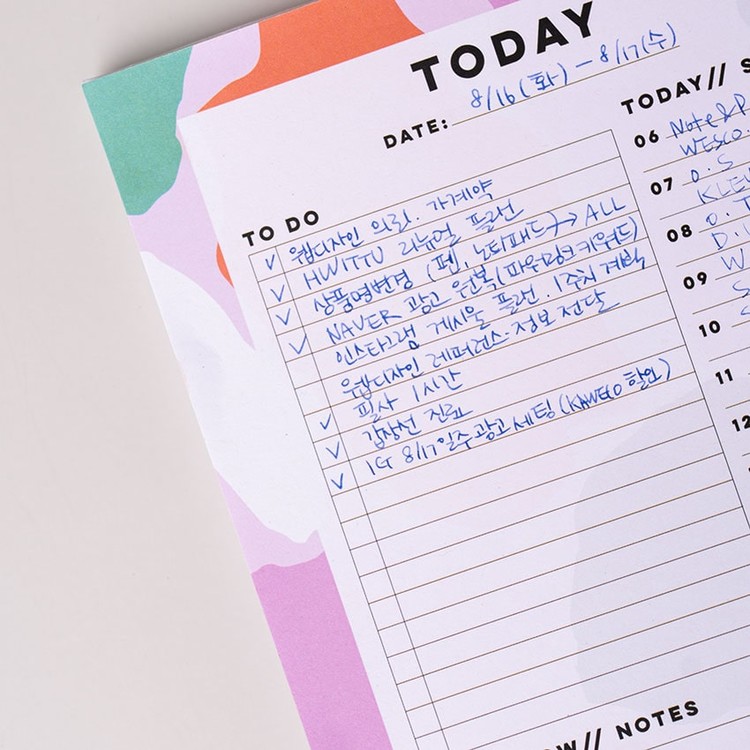 TODAY
DATE: 8/16(화) - 8/17(수)
TO DO
✓ 웹디자인 의뢰. 가계약
✓ HWITTU 리뉴얼 플랜
✓ 상품명변경 (펜, 노타패드) → ALL
✓ NAVER 광고 원복(파워링크키워드)
인스타그램 게시물 플랜. 1주치 계획
웹디자인 레퍼런스 정보 전달
✓ 필사 1시간
✓ 갑상선 진료
✓ IG 8/17일수광고세팅 (KAWECO 할인)
TODAY// S
06 Note&P
WESCO
07 O.S
KLE
08 O.T
D.
09 W
S
10
11
12
W// NOTES